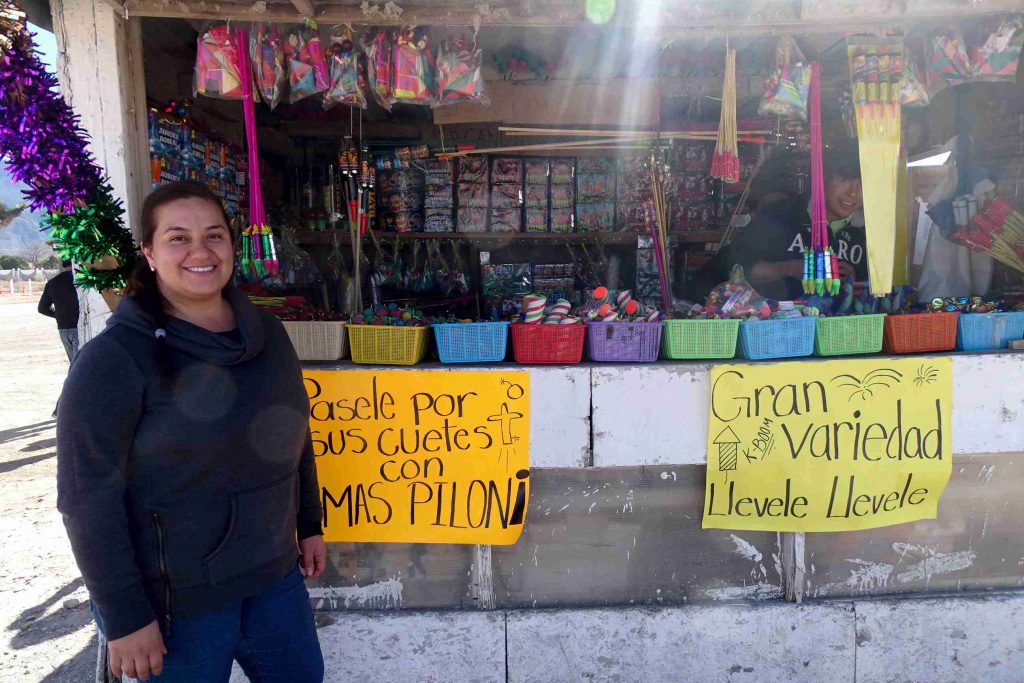 Pasele por
sus cuetes
con
MAS PILON¡
Gran
K-BOOM
variedad
Llevele Llevele